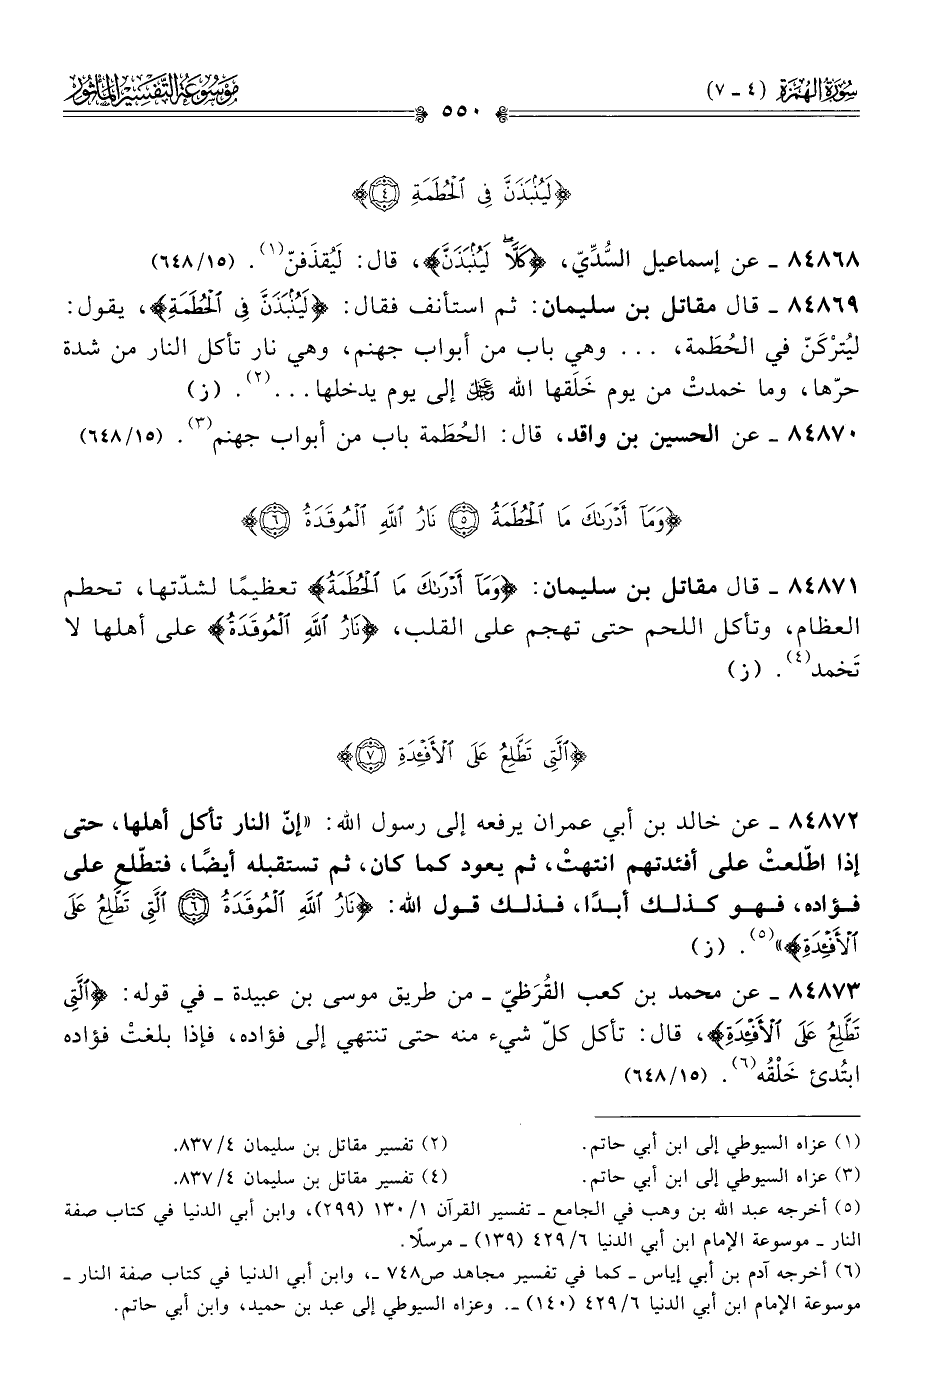 سُورَةُ الهُمَزَةِ (٤ - ٧)
٥٥٠
مَوْسُوعَةُ التَّفْسِيرِ المَأْثُورِ
﴿لَيُنۢبَذَنَّ فِي ٱلۡحُطَمَةِ ٤﴾
٨٤٨٦٨ - عن إسماعيل السُّدِّيّ، ﴿كَلَّاۖ لَيُنۢبَذَنَّ﴾، قال: لَيُقذَفنّ(١). (٦٤٨/١٥)
٨٤٨٦٩ - قال مقاتل بن سليمان: ثم استأنف فقال: ﴿لَيُنۢبَذَنَّ فِي ٱلۡحُطَمَةِ﴾، يقول:
ليُتركَنّ في الحُطَمة، ... وهي باب من أبواب جهنم، وهي نار تأكل النار من شدة
حرّها، وما خمدتْ من يوم خَلَقها الله ﷿ إلى يوم يدخلها...(٢). (ز)
٨٤٨٧٠ - عن الحسين بن واقد، قال: الحُطَمة باب من أبواب جهنم(٣). (٦٤٨/١٥)
﴿وَمَآ أَدۡرَىٰكَ مَا ٱلۡحُطَمَةُ ٥ نَارُ ٱللَّهِ ٱلۡمُوقَدَةُ ٦﴾
٨٤٨٧١ - قال مقاتل بن سليمان: ﴿وَمَآ أَدۡرَىٰكَ مَا ٱلۡحُطَمَةُ﴾ تعظيمًا لشدّتها، تحطم
العظام، وتأكل اللحم حتى تهجم على القلب، ﴿نَارُ ٱللَّهِ ٱلۡمُوقَدَةُ﴾ على أهلها لا
تَخمد(٤). (ز)
﴿ٱلَّتِي تَطَّلِعُ عَلَى ٱلۡأَفۡـِٔدَةِ ٧﴾
٨٤٨٧٢ - عن خالد بن أبي عمران يرفعه إلى رسول الله: «إنّ النار تأكل أهلها، حتى
إذا اطّلعتْ على أفئدتهم انتهتْ، ثم يعود كما كان، ثم تستقبله أيضًا، فتطّلع على
فؤاده، فهو كذلك أبدًا، فذلك قول الله: ﴿نَارُ ٱللَّهِ ٱلۡمُوقَدَةُ ٦ ٱلَّتِي تَطَّلِعُ عَلَى
ٱلۡأَفۡـِٔدَةِ﴾»(٥). (ز)
٨٤٨٧٣ - عن محمد بن كعب القُرَظيّ - من طريق موسى بن عبيدة - في قوله: ﴿ٱلَّتِي
تَطَّلِعُ عَلَى ٱلۡأَفۡـِٔدَةِ﴾، قال: تأكل كلّ شيء منه حتى تنتهي إلى فؤاده، فإذا بلغتْ فؤاده
ابتُدئ خَلْقُه(٦). (٦٤٨/١٥)
(١) عزاه السيوطي إلى ابن أبي حاتم. (٢) تفسير مقاتل بن سليمان ٨٣٧/٤.
(٣) عزاه السيوطي إلى ابن أبي حاتم. (٤) تفسير مقاتل بن سليمان ٨٣٧/٤.
(٥) أخرجه عبد الله بن وهب في الجامع - تفسير القرآن ١٣٠/١ (٢٩٩)، وابن أبي الدنيا في كتاب صفة
النار - موسوعة الإمام ابن أبي الدنيا ٤٢٩/٦ (١٣٩) - مرسلًا.
(٦) أخرجه آدم بن أبي إياس - كما في تفسير مجاهد ص٧٤٨ -، وابن أبي الدنيا في كتاب صفة النار -
موسوعة الإمام ابن أبي الدنيا ٤٢٩/٦ (١٤٠) -. وعزاه السيوطي إلى عبد بن حميد، وابن أبي حاتم.